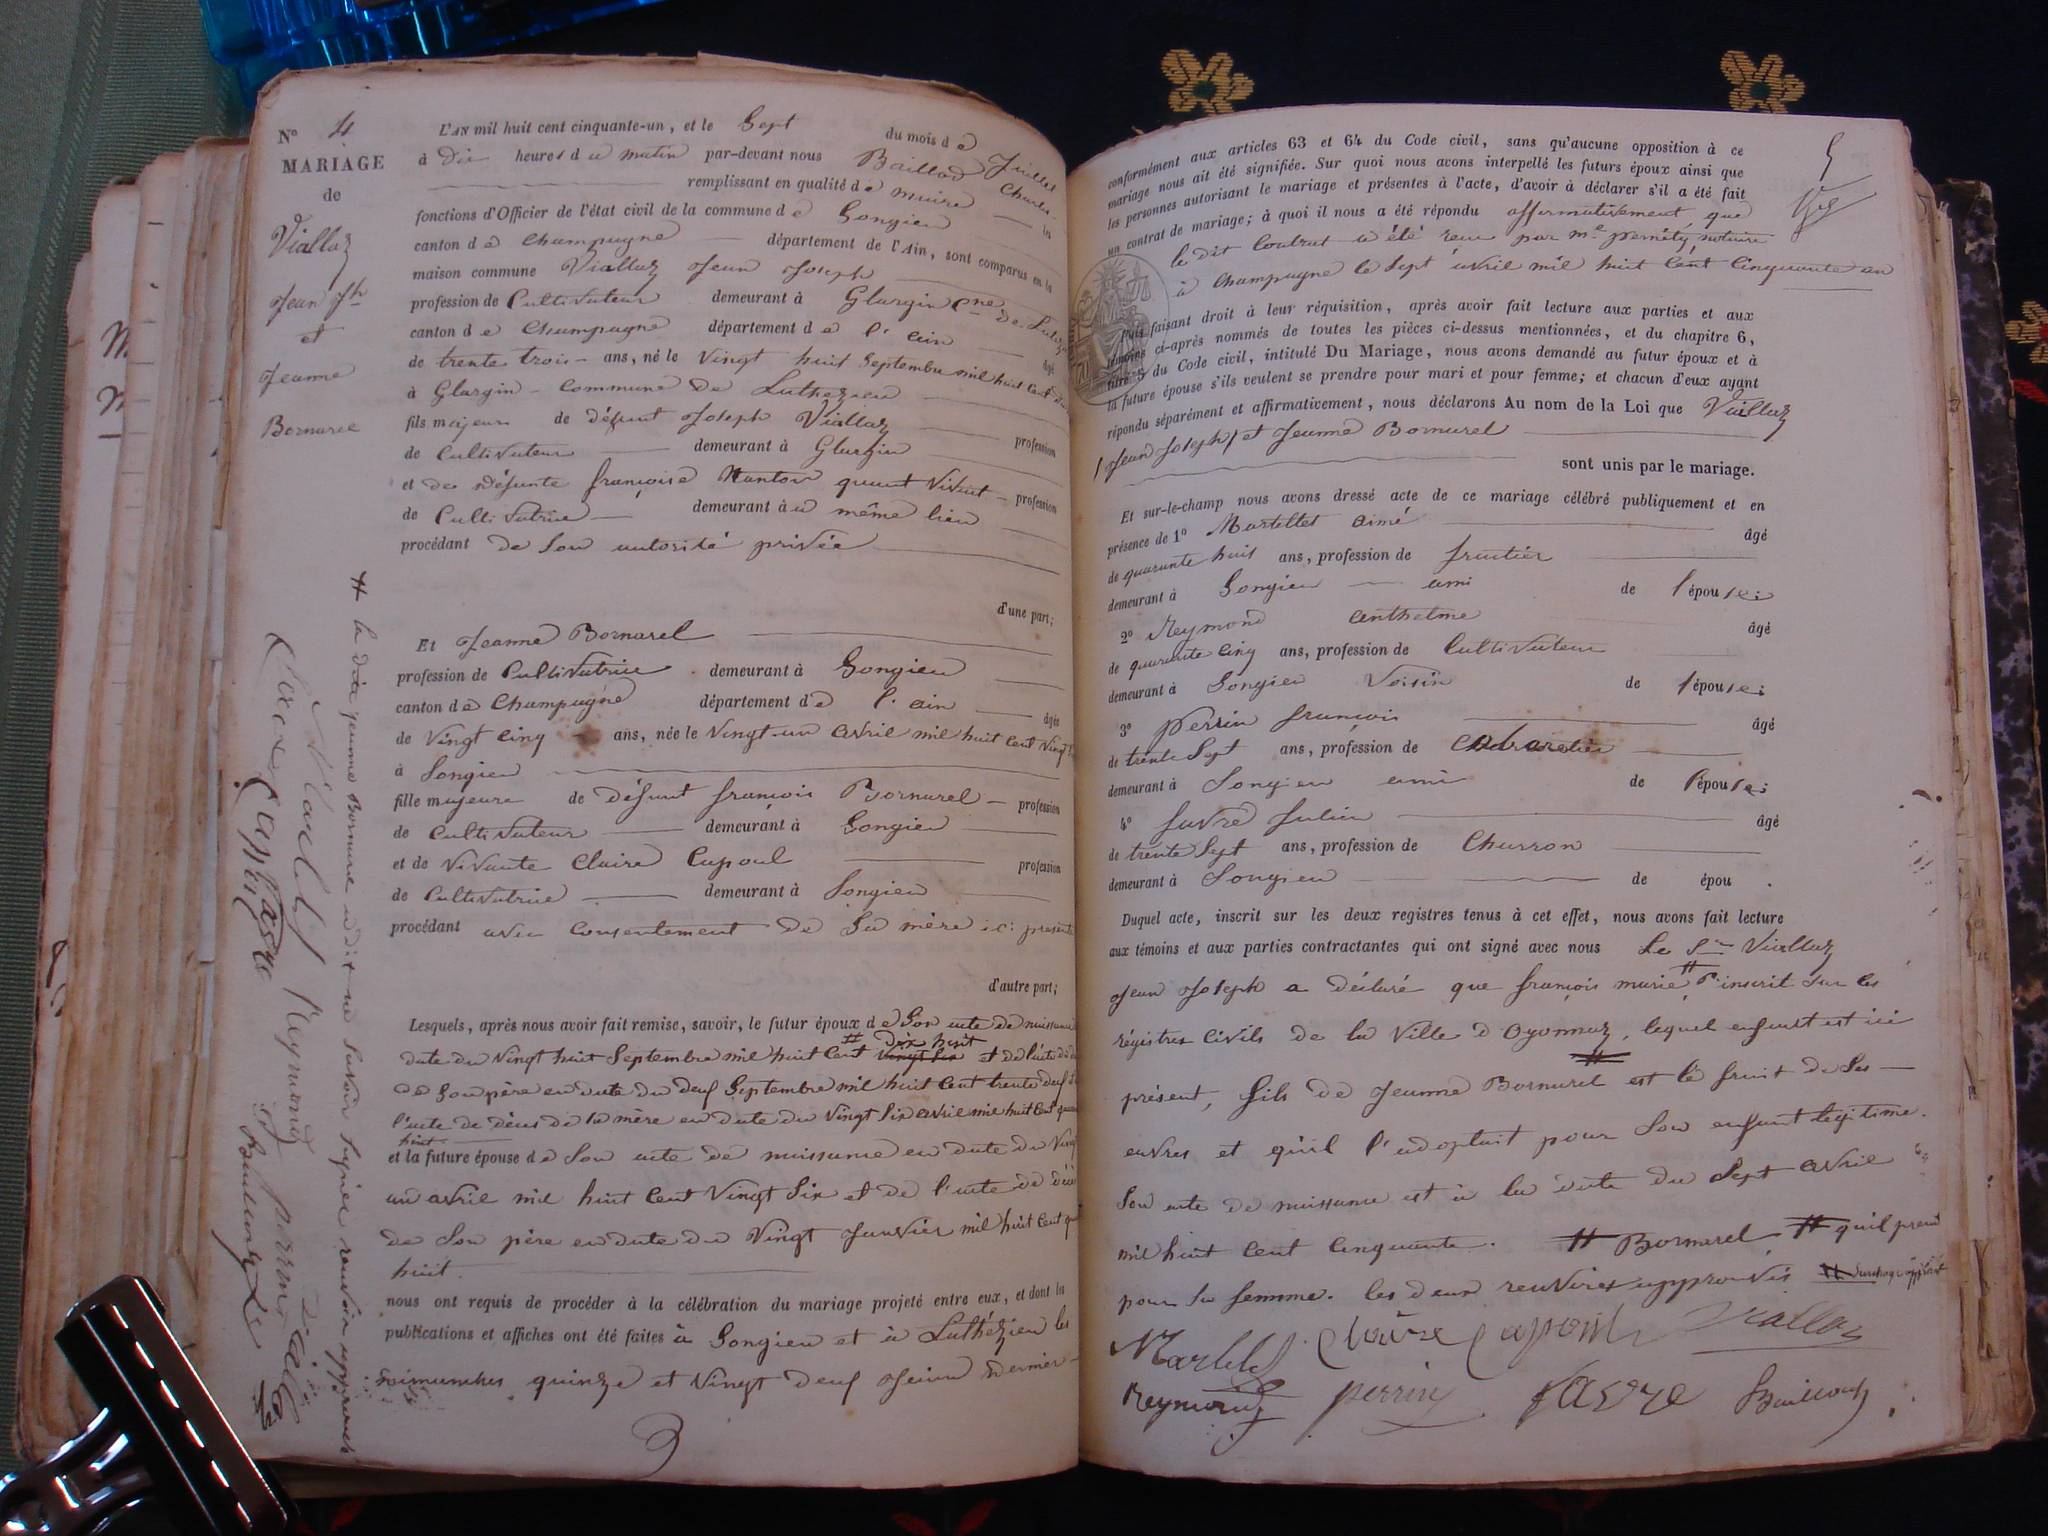 N° 4.
MARIAGE
de
Viallaz
Jean Jh
et
Jeanne
Bornarel
L'AN mil huit cent cinquante-un, et le Sept du mois de Juillet
à Dix heures du matin par-devant nous Baillod Charles
remplissant en qualité de maire les
fonctions d'Officier de l'état civil de la commune de Songieu
canton de Champagne département de l'Ain, sont comparus en la
maison commune Viallaz Jean Joseph
profession de Cultivateur demeurant à Glargin Cne de Luthézieu
canton de Champagne département de l'ain âgé
de trente trois ans, né le vingt huit Septembre mil huit cent dix
à Glargin commune de Luthezieu
fils majeur de défunt Joseph Viallaz profession
de Cultivateur demeurant à Glargin
et de Défunte françoise Nanton quant vivait profession
de Cultivatrice demeurant au même lieu
procédant de son autorité privée
d'une part;
Et Jeanne Bornarel
profession de Cultivatrice demeurant à Songieu
canton de Champagne département de l'ain âgée
de Vingt cinq ans, née le Vingt-un avril mil huit cent vingt
à Songieu
fille majeure de défunt françois Bornarel profession
de cultivateur demeurant à Songieu
et de vivante Claire Capoul profession
de Cultivatrice demeurant à Songieu
procédant avec consentement de Sa mère ici présente
d'autre part;
Lesquels, après nous avoir fait remise, savoir, le futur époux de Son acte de naissance
dix huit
date du Vingt huit Septembre mil huit cent vingt six et de l'acte de dé
cé de Son père en date du neuf Septembre mil huit cent trente neuf
l'acte de décès de sa mère en date du Vingt Six avril mil huit cent quarante
huit.
et la future épouse de Son acte de naissance en date du Vingt
un avril mil huit cent vingt six et de l'acte de décès
de Son père en date du Vingt Janvier mil huit cent qua
huit.
nous ont requis de procéder à la célébration du mariage projeté entre eux, et dont les
publications et affiches ont été faites à Songieu et à Luthézieu les
Dimanches quinze et vingt deux Juin dernier
# la dite jeanne Bornarel a dit ne savoir signer renvoi approuvé
Claire Capoul favre
Martelet Reymond perrin Viallaz
Baillod
5
conformément aux articles 63 et 64 du Code civil, sans qu'aucune opposition à ce
mariage nous ait été signifiée. Sur quoi nous avons interpellé les futurs époux ainsi que
les personnes autorisant le mariage et présentes à l'acte, d'avoir à déclarer s'il a été fait
un contrat de mariage; à quoi il nous a été répondu affirmativement que
le dit Contrat a été reçu par Me pernéty, notaire
à Champagne le Sept avril mil huit cent cinquante un
Puis faisant droit à leur réquisition, après avoir fait lecture aux parties et aux
témoins ci-après nommés de toutes les pièces ci-dessus mentionnées, et du chapitre 6,
titre 5 du Code civil, intitulé Du Mariage, nous avons demandé au futur époux et à
la future épouse s'ils veulent se prendre pour mari et pour femme; et chacun d'eux ayant
répondu séparément et affirmativement, nous déclarons Au nom de la Loi que Viallaz
Jean Joseph et Jeanne Bornarel
sont unis par le mariage.
Et sur-le-champ nous avons dressé acte de ce mariage célébré publiquement et en
présence de 1° Martellet aimé âgé
de quarante huit ans, profession de fruitier
demeurant à Songieu ami de l'épouse;
2° Reymond anthelme âgé
de quarante cinq ans, profession de Cultivateur
demeurant à Songieu Voisin de l'épouse;
3° Perrin françois âgé
de trente Sept ans, profession de Cabaretier
demeurant à Songieu ami de l'épouse;
4° favre Julien âgé
de trente Sept ans, profession de Charron
demeurant à Songieu de épou .
Duquel acte, inscrit sur les deux registres tenus à cet effet, nous avons fait lecture
aux témoins et aux parties contractantes qui ont signé avec nous Le Sieur Viallaz
Jean Joseph a déclaré que françois marie # inscrit sur les
régistres civils de la Ville d'Oyonnaz, lequel enfant est ici
présent, fils de Jeanne Bornarel # est le fruit de ses
œuvres et qu'il l'adoptait pour Son enfant légitime.
Son acte de naissance est à la date du Sept avril
mil huit cent cinquante. # Bornarel # qu'il prend
pour Sa femme. les deux renvoies approuvés
Martelet Claire Capoul Viallaz
Reymond perrin favre Baillod